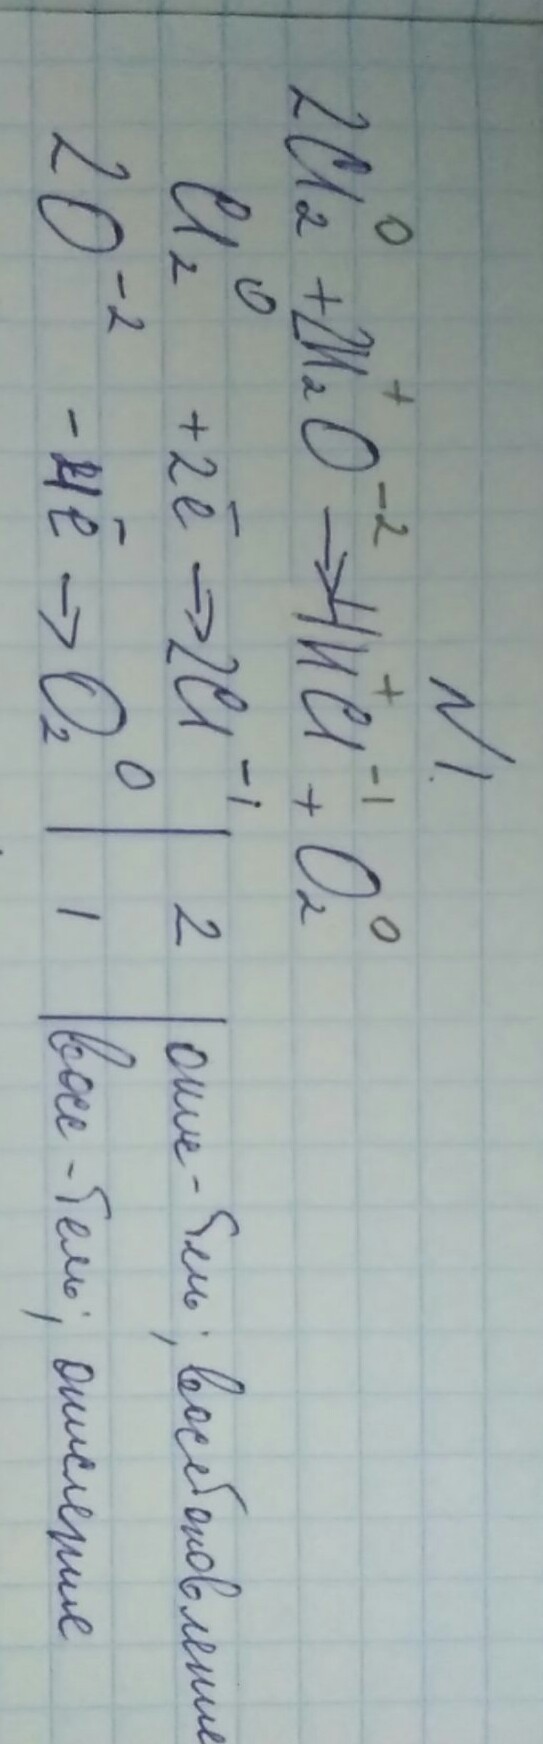 N1.
2Cl₂⁰ + 2H₂⁺O⁻² → 4H⁺Cl⁻¹ + O₂⁰
Cl₂⁰ +2ē → 2Cl⁻¹ | 2 | окис-тель; восстановление
2O⁻² -4ē → O₂⁰ | 1 | восс-тель; окисление